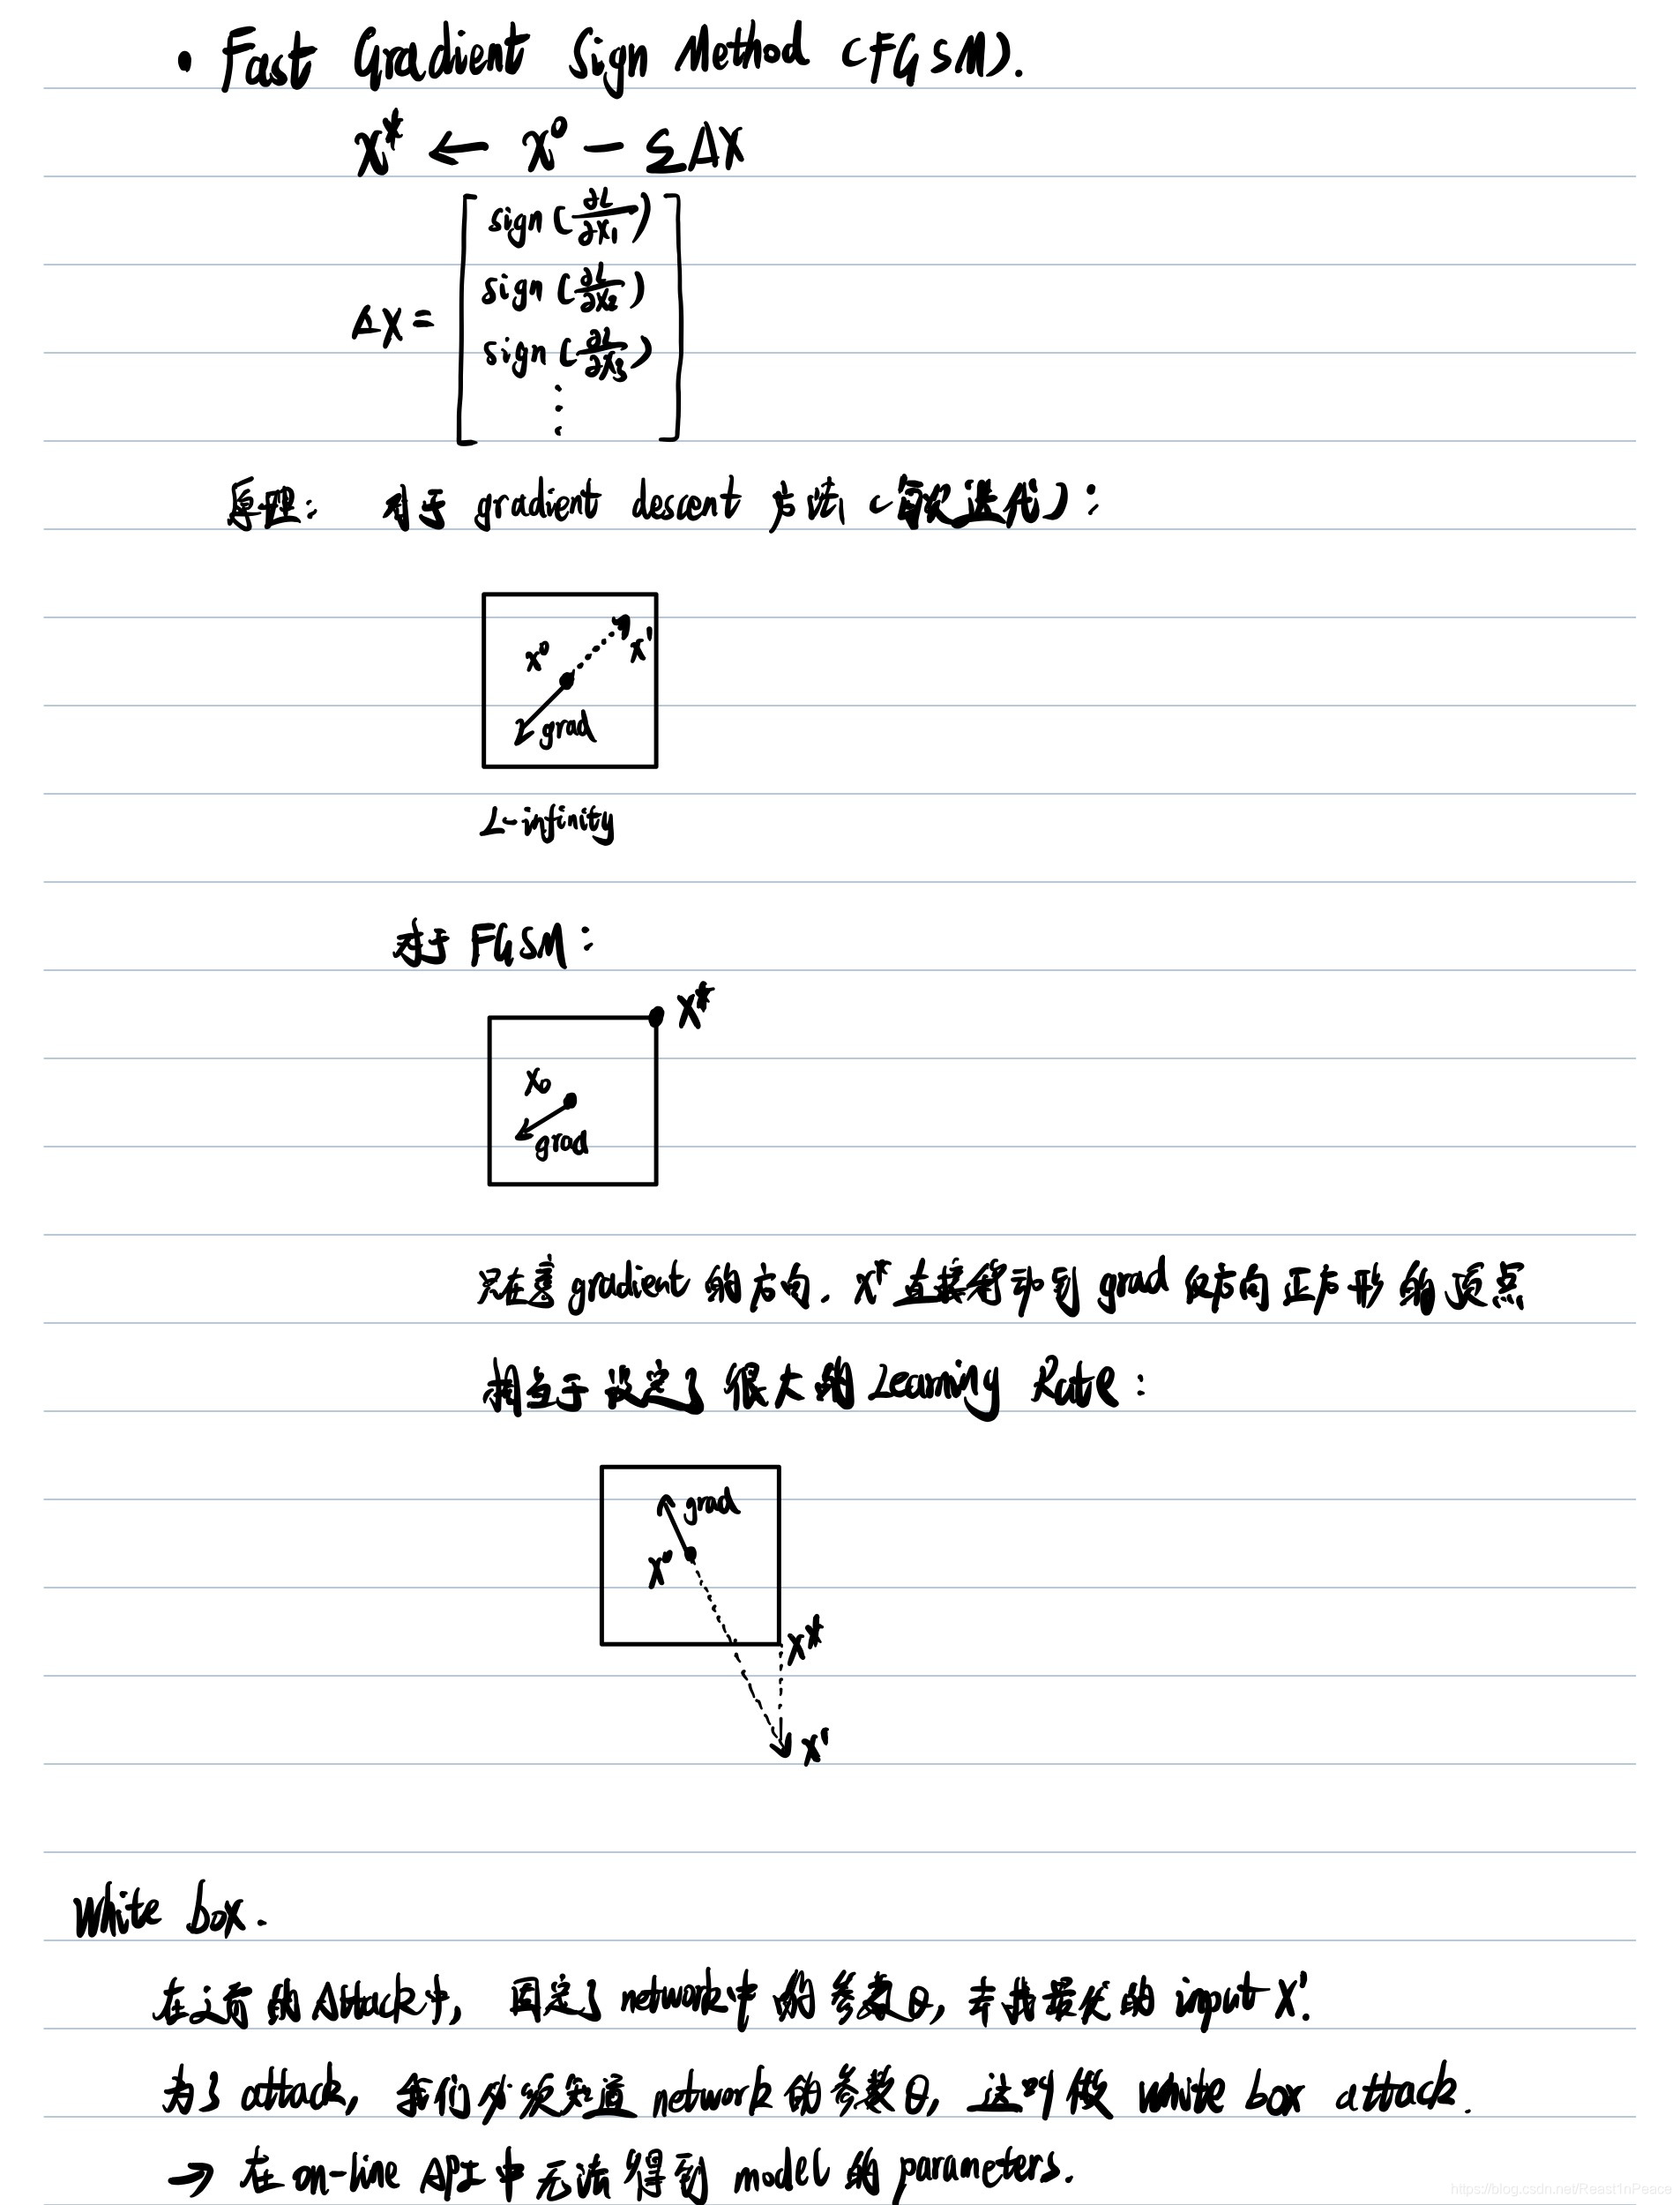 • Fast Gradient Sign Method (FGSM).
X* ← X⁰ − εΔX
ΔX = [
sign(∂L/∂X₁)
sign(∂L/∂X₂)
sign(∂L/∂X₃)
⋮
]
原理: 对于 gradient descent 方法 (每次迭代):
x⁰
x'
grad
L-infinity
对于 FGSM:
X*
X₀
grad
只在意 gradient 的方向. X* 直接移动到 grad 反方向正方形的顶点
相当于设定了很大的 Learning Rate:
grad
X⁰
X*
X'
White box.
在之前的 Attack中, 固定了 network中的参数θ, 去找最优的 input X'.
为了 attack, 我们必须知道 network 的参数θ, 这叫做 white box attack.
→ 在 on-line API 中无法得到 model 的 parameters.
https://blog.csdn.net/Reast1nPeace